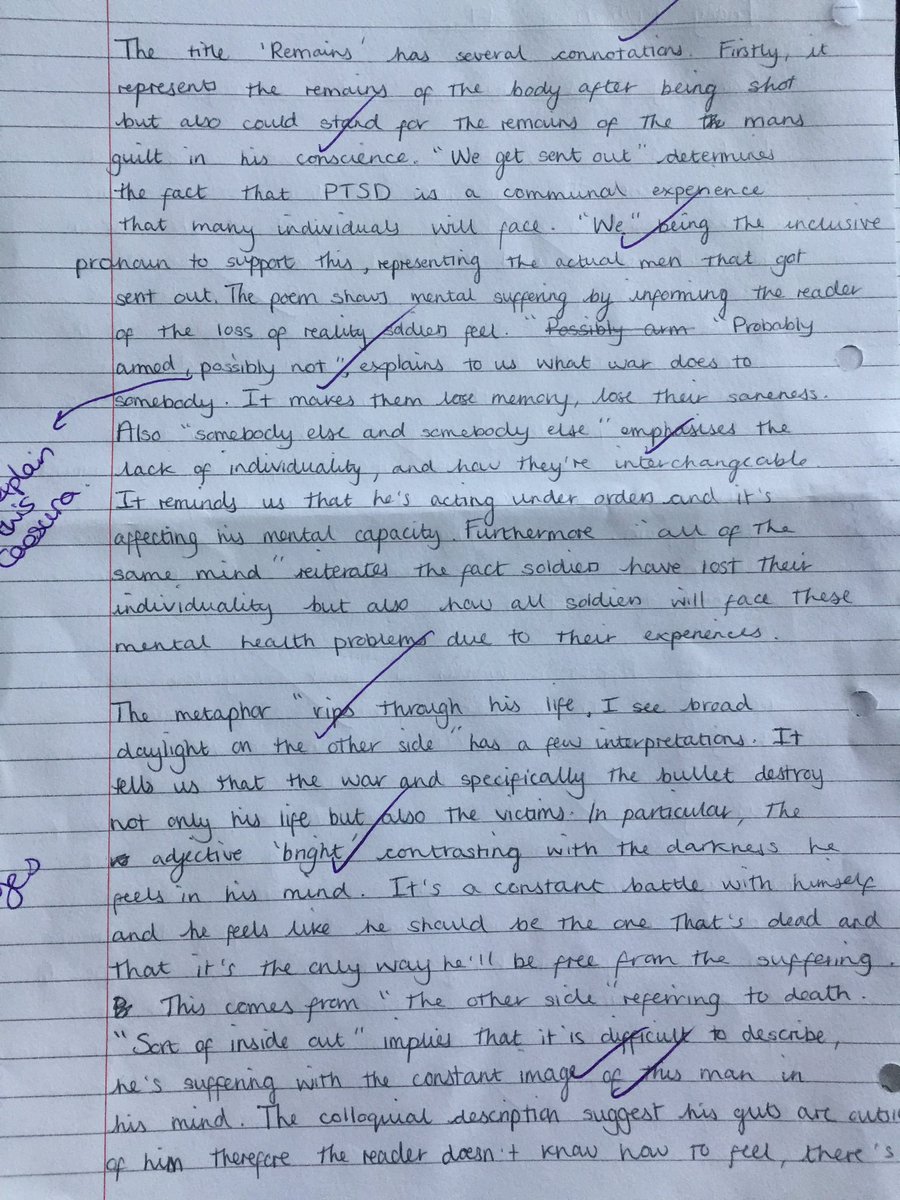 The title 'Remains' has several connotations. Firstly, it
represents the remains of the body after being shot
but also could stand for the remains of the mans
guilt in his conscience. "We get sent out" determines
the fact that PTSD is a communal experience
that many individuals will face. "We" being the inclusive
pronoun to support this, representing the actual men that got
sent out. The poem shows mental suffering by informing the reader
of the loss of reality soldiers feel. "Possibly arm "Probably
armed, possibly not", explains to us what war does to
somebody. It makes them lose memory, lose their saneness.
Also "somebody else and somebody else" emphasises the
lack of individuality, and how they're interchangeable.
It reminds us that he's acting under orders and it's
affecting his mental capacity. Furthermore "all of the
same mind" reiterates the fact soldiers have lost their
individuality but also how all soldiers will face these
mental health problems due to their experiences.
explain
this
caesura.
The metaphor "rips through his life, I see broad
daylight on the other side" has a few interpretations. It
tells us that the war and specifically the bullet destroy
not only his life but also the victims. In particular, the
adjective 'bright' contrasting with the darkness he
feels in his mind. It's a constant battle with himself
and he feels like he should be the one that's dead and
that it's the only way he'll be free from the suffering.
This comes from "the other side" referring to death.
"Sort of inside out" implies that it is difficult to describe,
he's suffering with the constant image of this man in
his mind. The colloquial description suggest his guts are outsi
of him therefore the reader doesn't know how to feel, there's